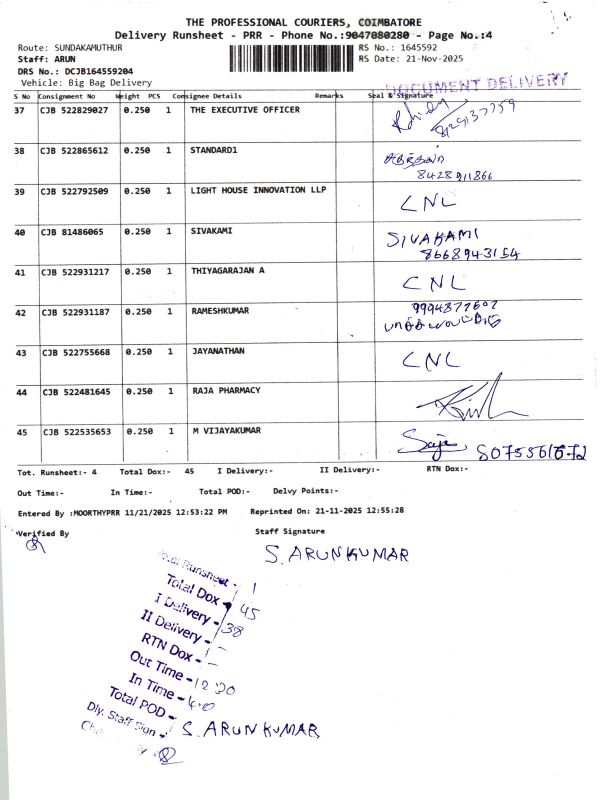 THE PROFESSIONAL COURIERS, COIMBATORE
Delivery Runsheet - PRR - Phone No.:9047080280 - Page No.:4
Route: SUNDAKAMUTHUR RS No.: 1645592
Staff: ARUN RS Date: 21-Nov-2025
DRS No.: DCJB164559204
Vehicle: Big Bag Delivery DOCUMENT DELIVERY
S No Consignment No Weight PCS Consignee Details Remarks Seal & Signature
37 CJB 522829027 0.250 1 THE EXECUTIVE OFFICER
38 CJB 522865612 0.250 1 STANDARD1
8428911866
39 CJB 522792509 0.250 1 LIGHT HOUSE INNOVATION LLP CNL
40 CJB 81486065 0.250 1 SIVAKAMI SIVAKAMI
8668943154
41 CJB 522931217 0.250 1 THIYAGARAJAN A CNL
42 CJB 522931187 0.250 1 RAMESHKUMAR
43 CJB 522755668 0.250 1 JAYANATHAN CNL
44 CJB 522481645 0.250 1 RAJA PHARMACY
45 CJB 522535653 0.250 1 M VIJAYAKUMAR
Tot. Runsheet:- 4 Total Dox:- 45 I Delivery:- II Delivery:- RTN Dox:-
Out Time:- In Time:- Total POD:- Delvy Points:-
Entered By :MOORTHYPRR 11/21/2025 12:53:22 PM Reprinted On: 21-11-2025 12:55:28
Verified By Staff Signature
S. ARUNKUMAR
Runsheet - 1
Total Dox - 45
I Delivery - 38
II Delivery -
RTN Dox -
Out Time - 12 20
In Time - 4.0
Total POD -
Dly. Staff Sign - S. ARUNKUMAR